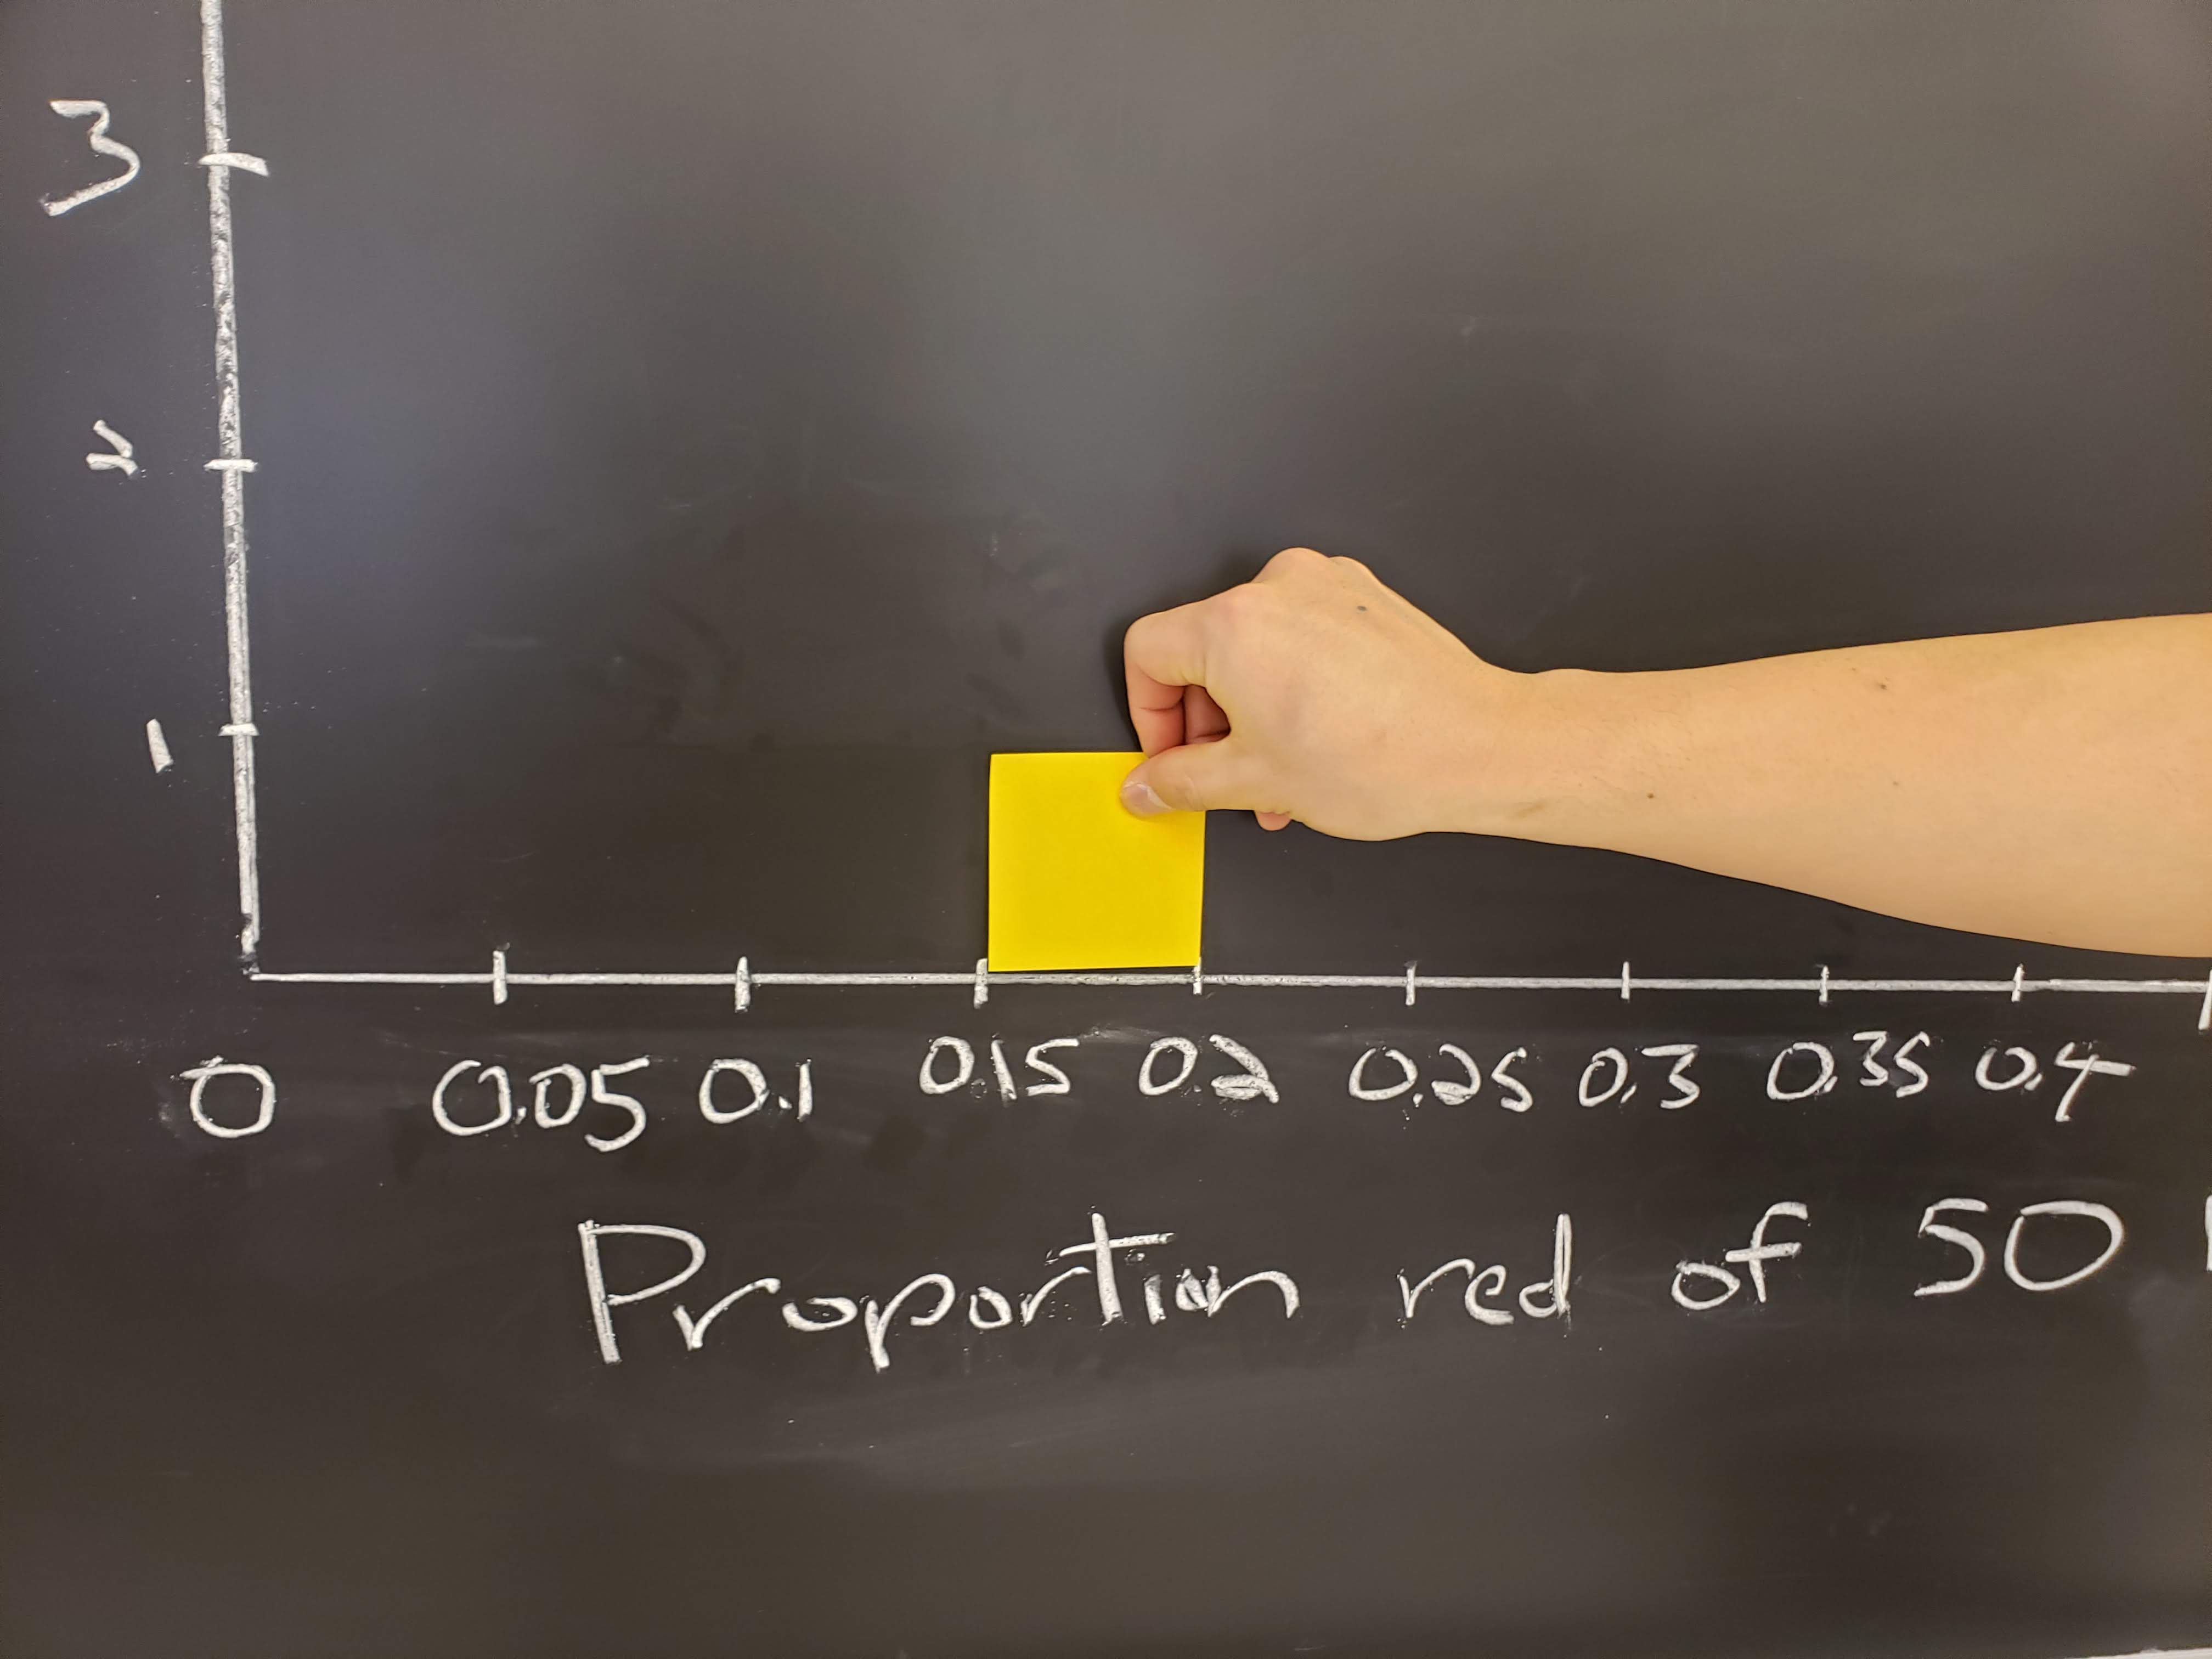 3
2
1
0 0.05 0.1 0.15 0.2 0.25 0.3 0.35 0.4
Proportion red of 50